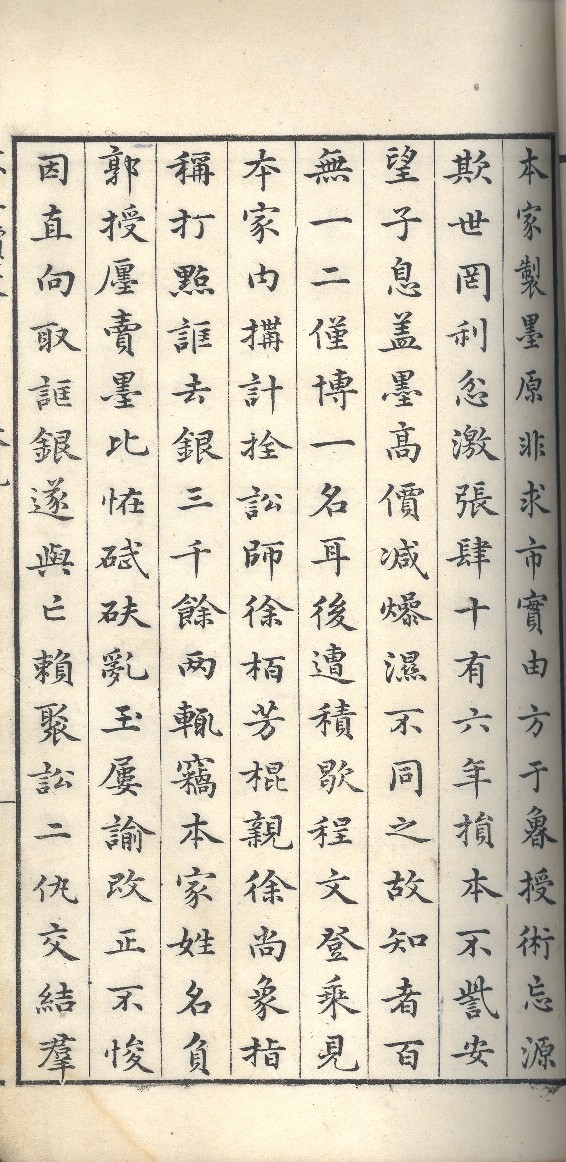 本家製墨原非求市實由方于魯授術忘源
欺世罔利忿激張肆十有六年損本不貲安
望子息盖墨高價减燥濕不同之故知者百
無一二僅博一名耳後遭積歇程文登乘見
本家内搆計拴訟師徐栢芳棍親徐尚象指
稱打點誆去銀三千餘两輒竊本家姓名負
郭授廛賣墨比恠碔砆亂玉屢諭改正不悛
因直向取誆銀遂與亡賴聚訟二仇交結羣